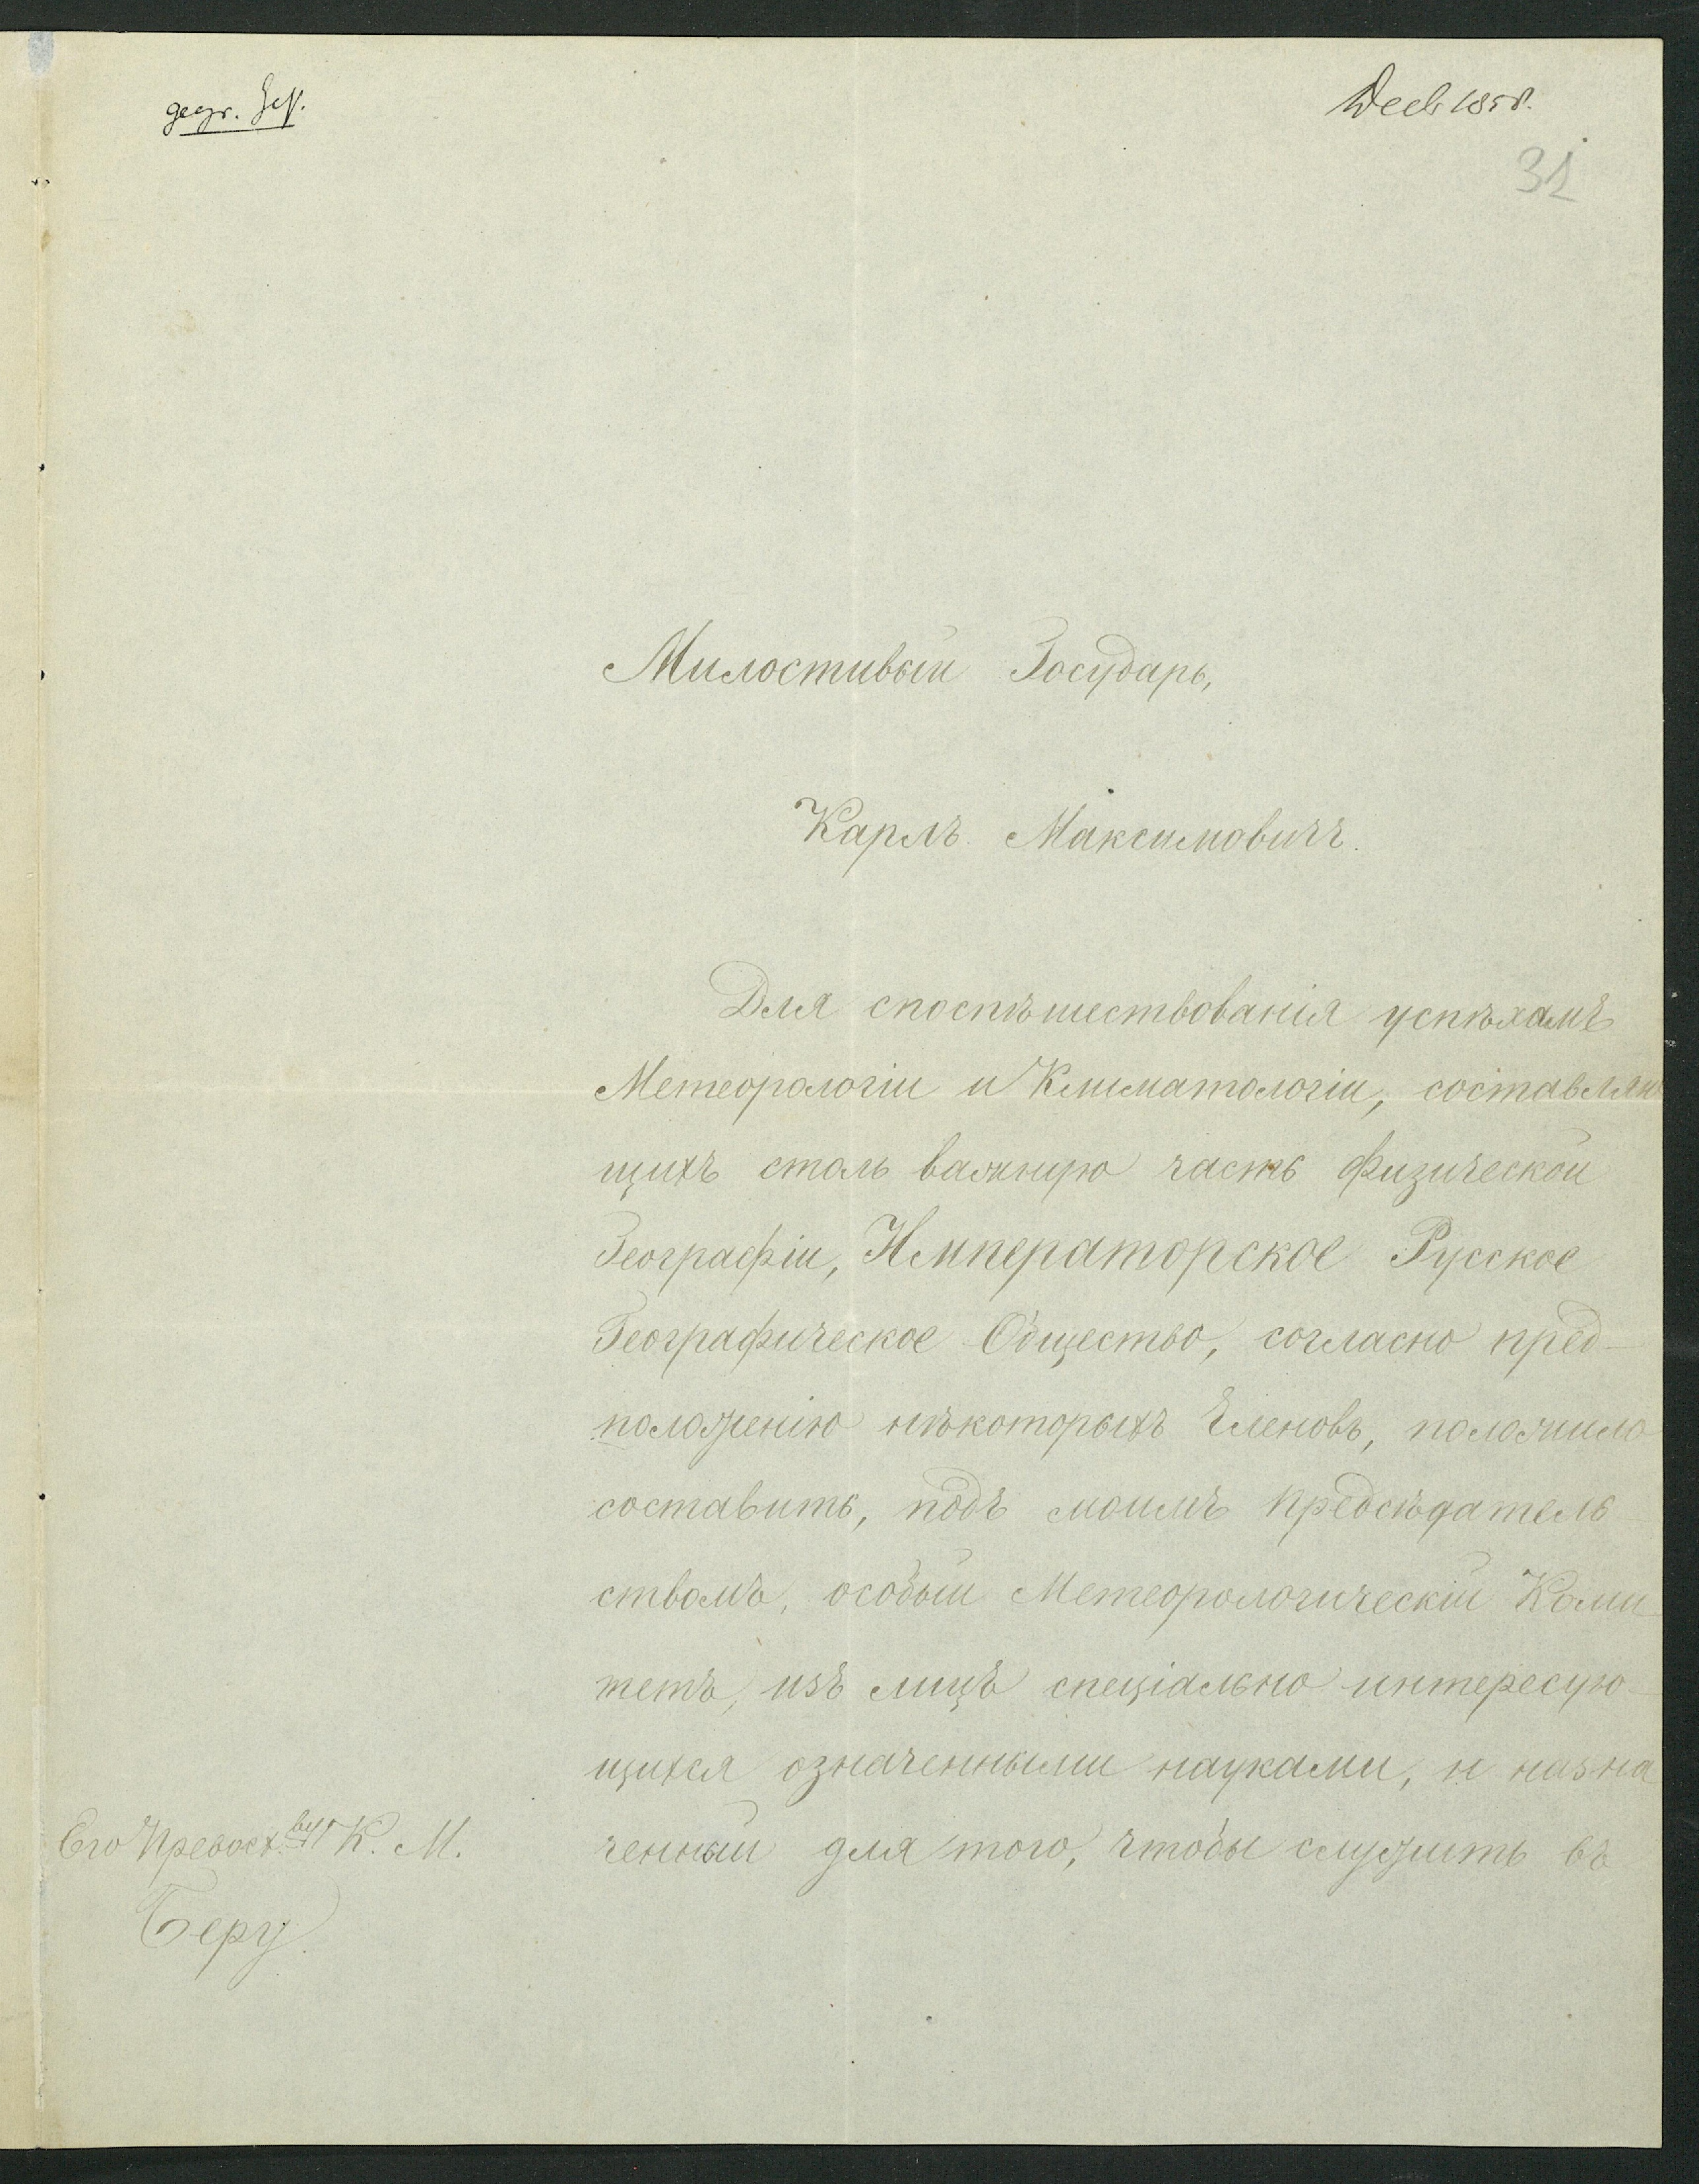 geogr. Ges.
Dec 1858.
31
Милостивый Государь,
Карлъ Максимовичъ.
Для споспѣшествованія успѣхамъ
Метеорологіи и Климатологіи, составляю
щихъ столь важную часть физической
Географіи, Императорское Русское
Географическое Общество, согласно пред-
положенію нѣкоторыхъ Членовъ, положило
составить, подъ моимъ предсѣдатель
ствомъ, особый Метеорологическій Коми
тетъ, изъ лицъ спеціально интересую-
щихся означенными науками, и назна
ченный для того, чтобы служить въ
Его Превосх.ву К. М.
Беру.